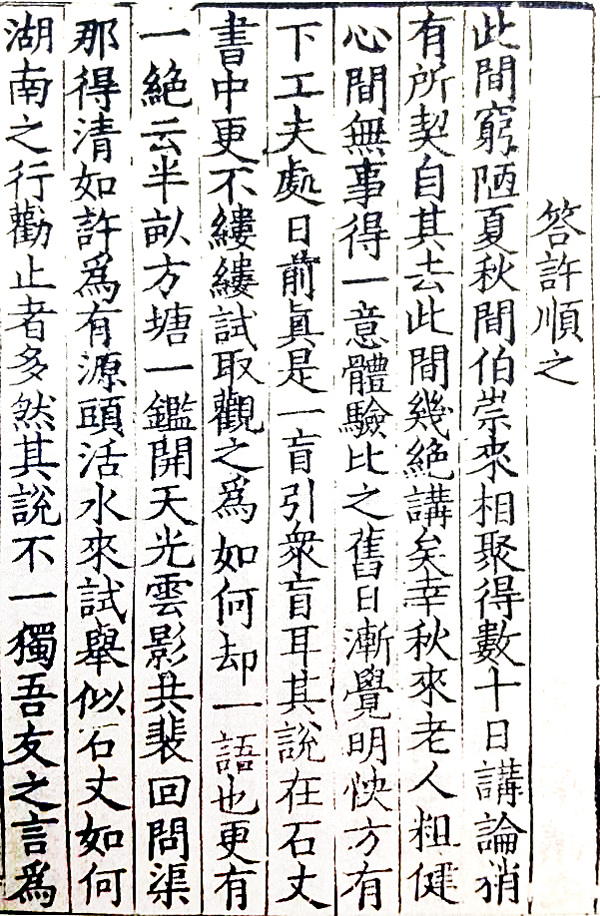 答許順之
此間窮陋夏秋間伯崇來相聚得數十日講論稍
有所契自其去此間幾絶講矣幸秋來老人粗健
心間無事得一意體驗比之舊日漸覺明快方有
下工夫處日前眞是一盲引衆盲耳其說在石丈
書中更不縷縷試取觀之爲如何却一語也更有
一絶云半畝方塘一鑑開天光雲影共裴回問渠
那得清如許爲有源頭活水來試舉似石丈如何
湖南之行勸止者多然其說不一獨吾友之言爲